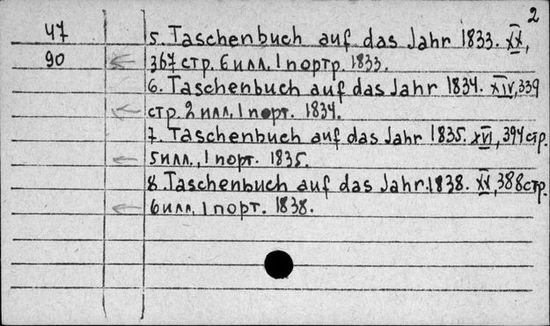 2
47
90
5. Taschenbuch auf das Jahr 1833. XX,
367 стр. 6 илл. 1 портр. 1833.
6. Taschenbuch auf das Jahr 1834. XIV, 339
стр. 2 илл. 1 порт. 1834.
7. Taschenbuch auf das Jahr 1835. XVI, 394 стр.
5 илл., 1 порт. 1835.
8. Taschenbuch auf das Jahr. 1838. XX, 388 стр.
6 илл. 1 порт. 1838.